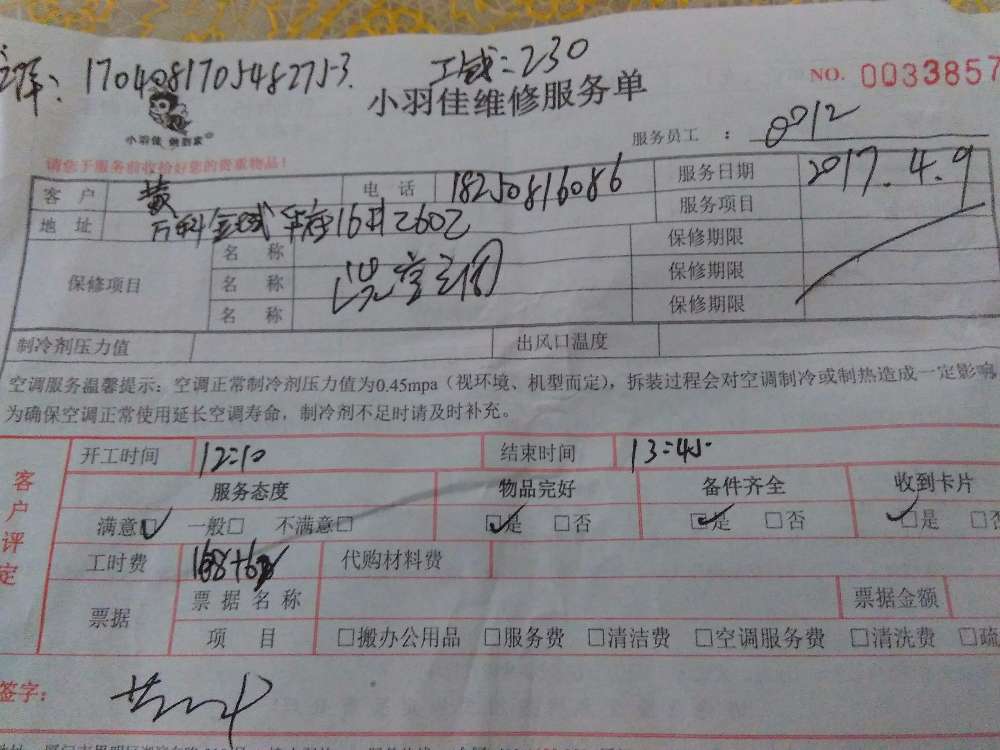 170408170548275-3.
230
小羽佳维修服务单
NO. 0033857
小羽佳 俩到家
服务员工 : 0012
请您于服务前收拾好您的贵重物品!
客户 黄 电话 18250816086 服务日期 2017.4.9
地址 万科金域华府16#2602 服务项目
保修项目 名称 洗空调 保修期限
名称 保修期限
名称 保修期限
制冷剂压力值 出风口温度
空调服务温馨提示:空调正常制冷剂压力值为0.45mpa(视环境、机型而定),拆装过程会对空调制冷或制热造成一定影响
为确保空调正常使用延长空调寿命,制冷剂不足时请及时补充。
客户评定
开工时间 12:10 结束时间 13:45
服务态度 物品完好 备件齐全 收到卡片
满意☑ 一般□ 不满意□ ☑是 □否 ☑是 □否 ☑是 □否
工时费 168+62 代购材料费
票据 票据名称 票据金额
项目 □搬办公用品 □服务费 □清洁费 □空调服务费 □清洗费 □疏
签字: